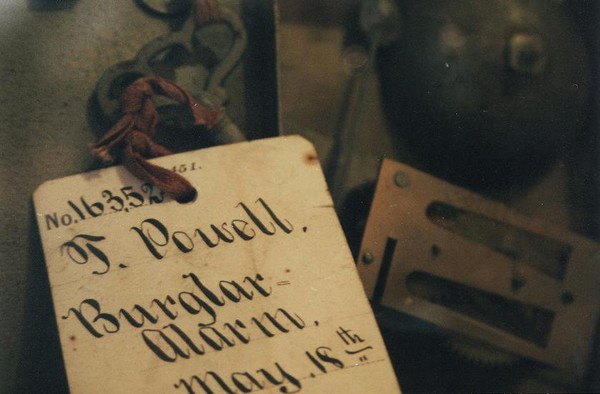 151.
No. 16,352
T. Powell.
Burglar-
Alarm.
May 18th